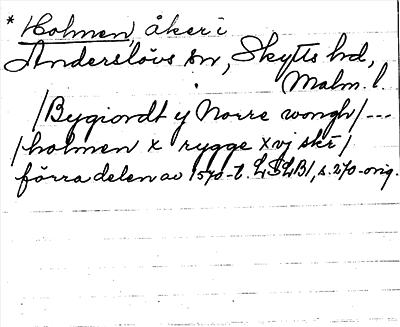 * Holmen, åker i
Anderslövs sn, Skytts hd,
Malm. l.
/Bygiordt y Norre wongh/---
/holmen x rygge xvj skr/
förra delen av 1570-t. LSLB1, s. 270-orig.